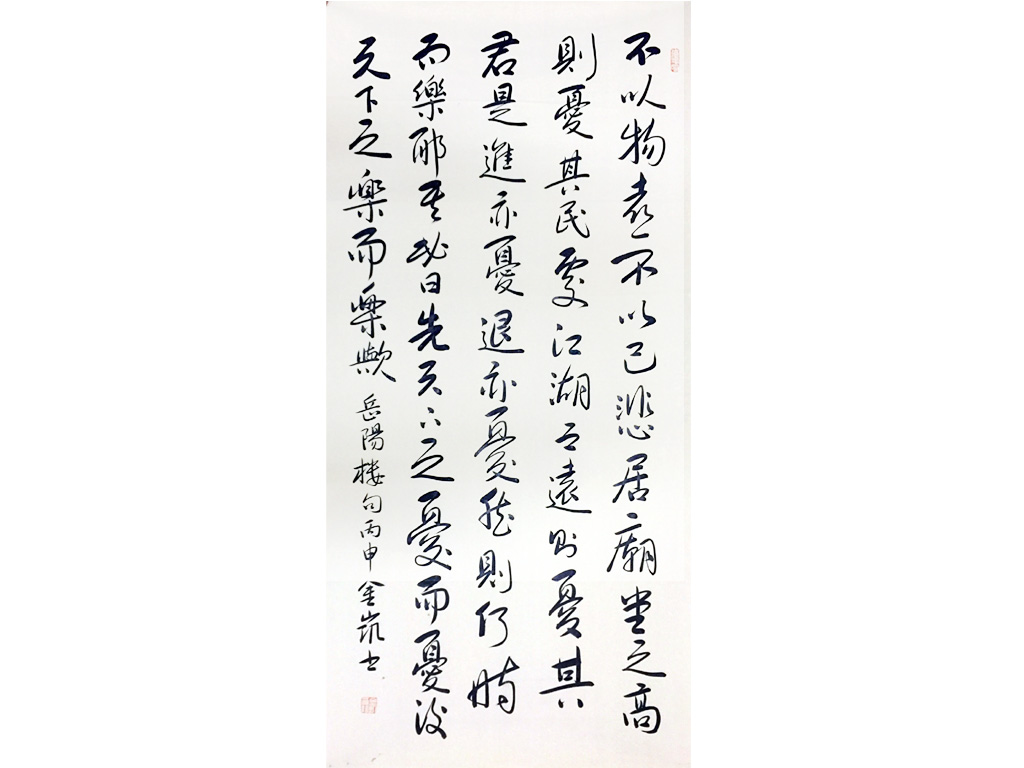 不以物喜不以己悲居廟堂之高
則憂其民處江湖之遠則憂其
君是進亦憂退亦憂然則何時
而樂耶其必曰先天下之憂而憂後
天下之樂而樂歟 岳陽楼句丙申金凱书